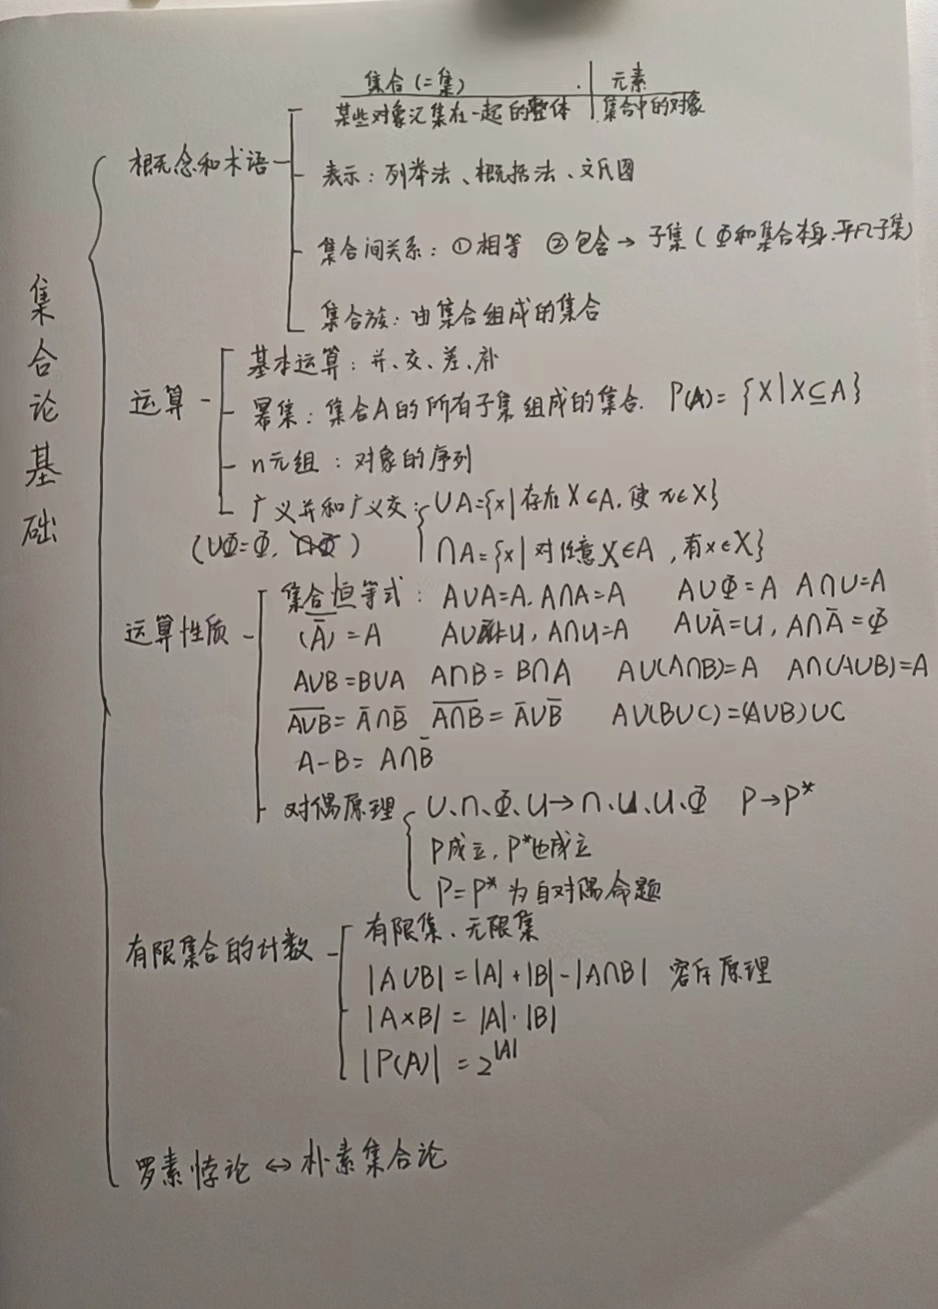 集合论基础
概念和术语
集合(=集) 元素
某些对象汇集在一起的整体 集合中的对象
表示：列举法、概括法、文氏图
集合间关系：①相等 ②包含→子集(Φ和集合本身.平凡子集)
集合族：由集合组成的集合
运算
基本运算：并、交、差、补
幂集：集合A的所有子集组成的集合. P(A)={X|X⊆A}
n元组：对象的序列
广义并和广义交：∪A={x|存在X∈A,使x∈X}
(∪Φ=Φ, ) ∩A={x|对任意X∈A,有x∈X}
运算性质
集合恒等式：A∪A=A.A∩A=A A∪Φ=A A∩U=A
(A̿)=A A∪ =U,A∩U=A A∪Ā=U,A∩Ā=Φ
A∪B=B∪A A∩B=B∩A A∪(A∩B)=A A∩(A∪B)=A
A∪B‾=Ā∩B̄ A∩B‾=Ā∪B̄ A∪(B∪C)=(A∪B)∪C
A-B=A∩B̄
对偶原理 ∪.∩.Φ.U→∩.∪.U.Φ P→P*
P成立,P*也成立
P=P*为自对偶命题
有限集合的计数
有限集、无限集
|A∪B|=|A|+|B|-|A∩B| 容斥原理
|A×B|=|A|·|B|
|P(A)|=2^|A|
罗素悖论↔朴素集合论